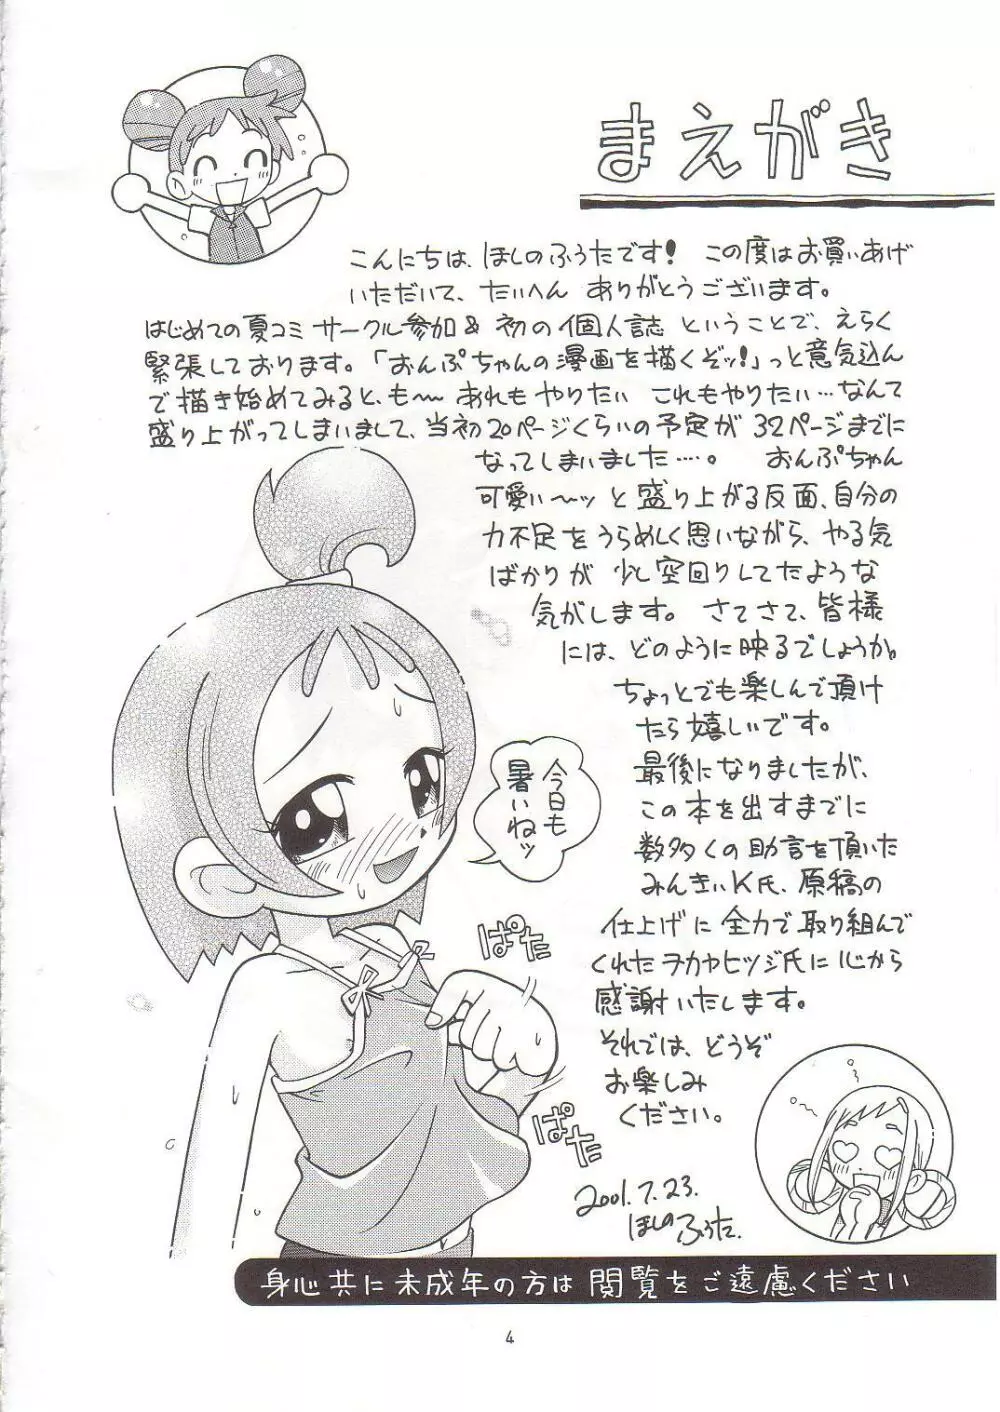 まえがき
こんにちは、ほしのふうたです! この度はお買いあげ
いただいて、たいへん ありがとうございます。
はじめての夏コミ サークル参加& 初の個人誌 ということで、えらく
緊張しております。「おんぷちゃんの漫画を描くぞッ!」っと意気込ん
で描き始めてみると、も〜 あれもやりたい これもやりたい…なんて
盛り上がってしまいまして、当初20ページくらいの予定が 32ページまでに
なってしまいました…。 おんぷちゃん
可愛い〜ッ と盛り上がる反面、自分の
力不足をうらめしく思いながら、やる気
ばかりが 少し空回りしてたような
気がします。 さてさて、皆様
には、どのように映るでしょうか。
ちょっとでも楽しんで頂け
たら嬉しいです。
最後になりましたが、
この本を出すまでに
数多くの助言を頂いた
みんきぃK氏、原稿の
仕上げに全力で取り組んで
くれたヲカヤヒツジ氏に心から
感謝いたします。
それでは、どうぞ
お楽しみ
ください。
今日も
暑いねッ
ぱた
ぱた
2001.7.23.
ほしのふうた.
身心共に未成年の方は閲覧をご遠慮ください
4